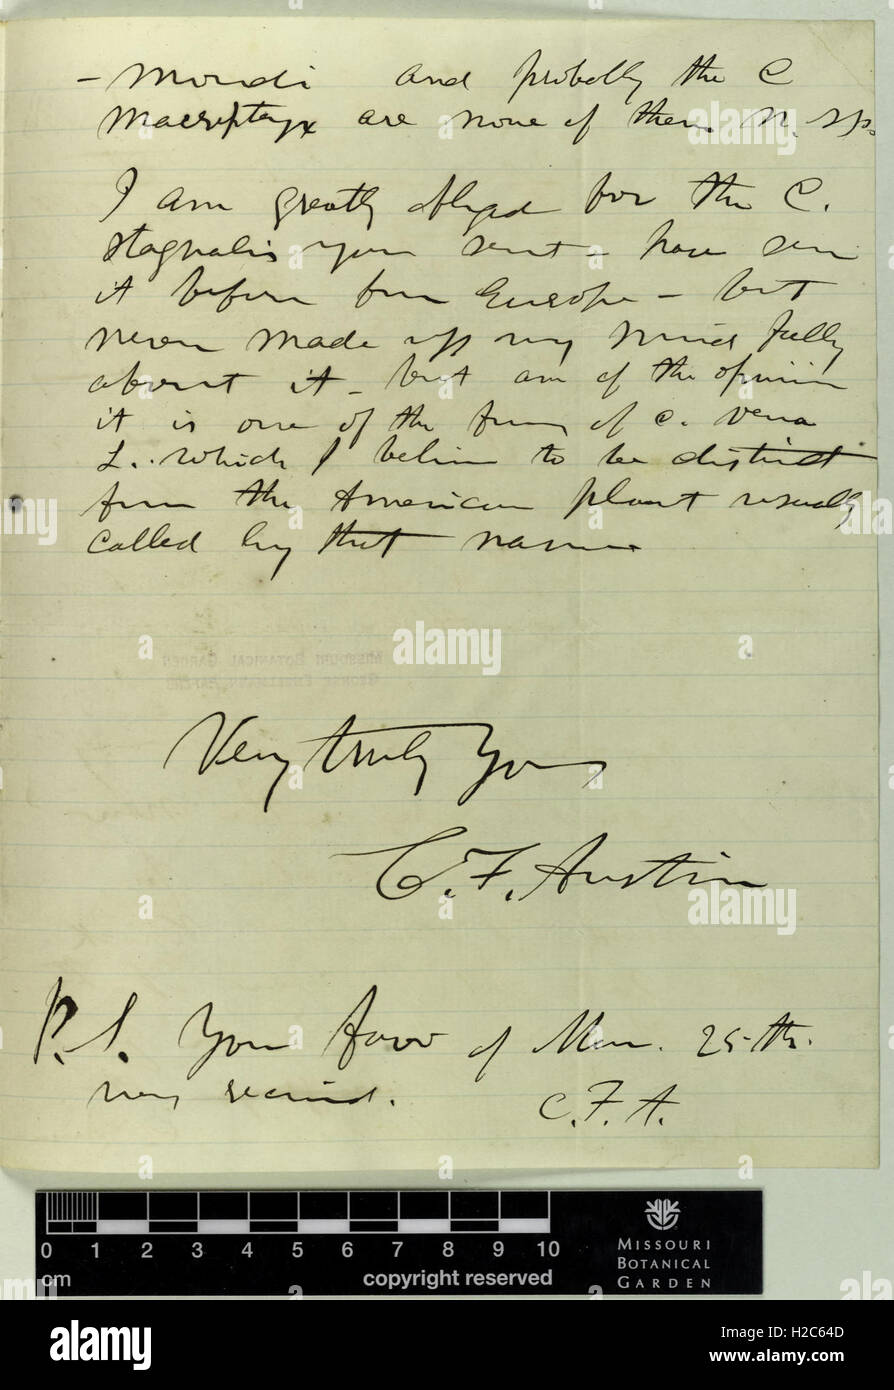 and probably the C
are none of them n. sp.
I am greatly obliged for the C.
stagnalis you sent – have seen
it before from Europe – but
never made up my mind fully
about it – but am of the opinion
it is one of the forms of C. verna
L. which I believe to be distinct
from the American plant usually
called by that name
MISSOURI BOTANICAL GARDEN
GEORGE ENGELMANN PAPERS
Very truly Yours
C. F. Austin
P.S. Your favor of Mar. 25th.
received.
C. F. A.
0 1 2 3 4 5 6 7 8 9 10
cm
copyright reserved
MISSOURI
BOTANICAL
GARDEN
a alamy stock photo
a a a
alamy
Image ID: H2C64D
www.alamy.com